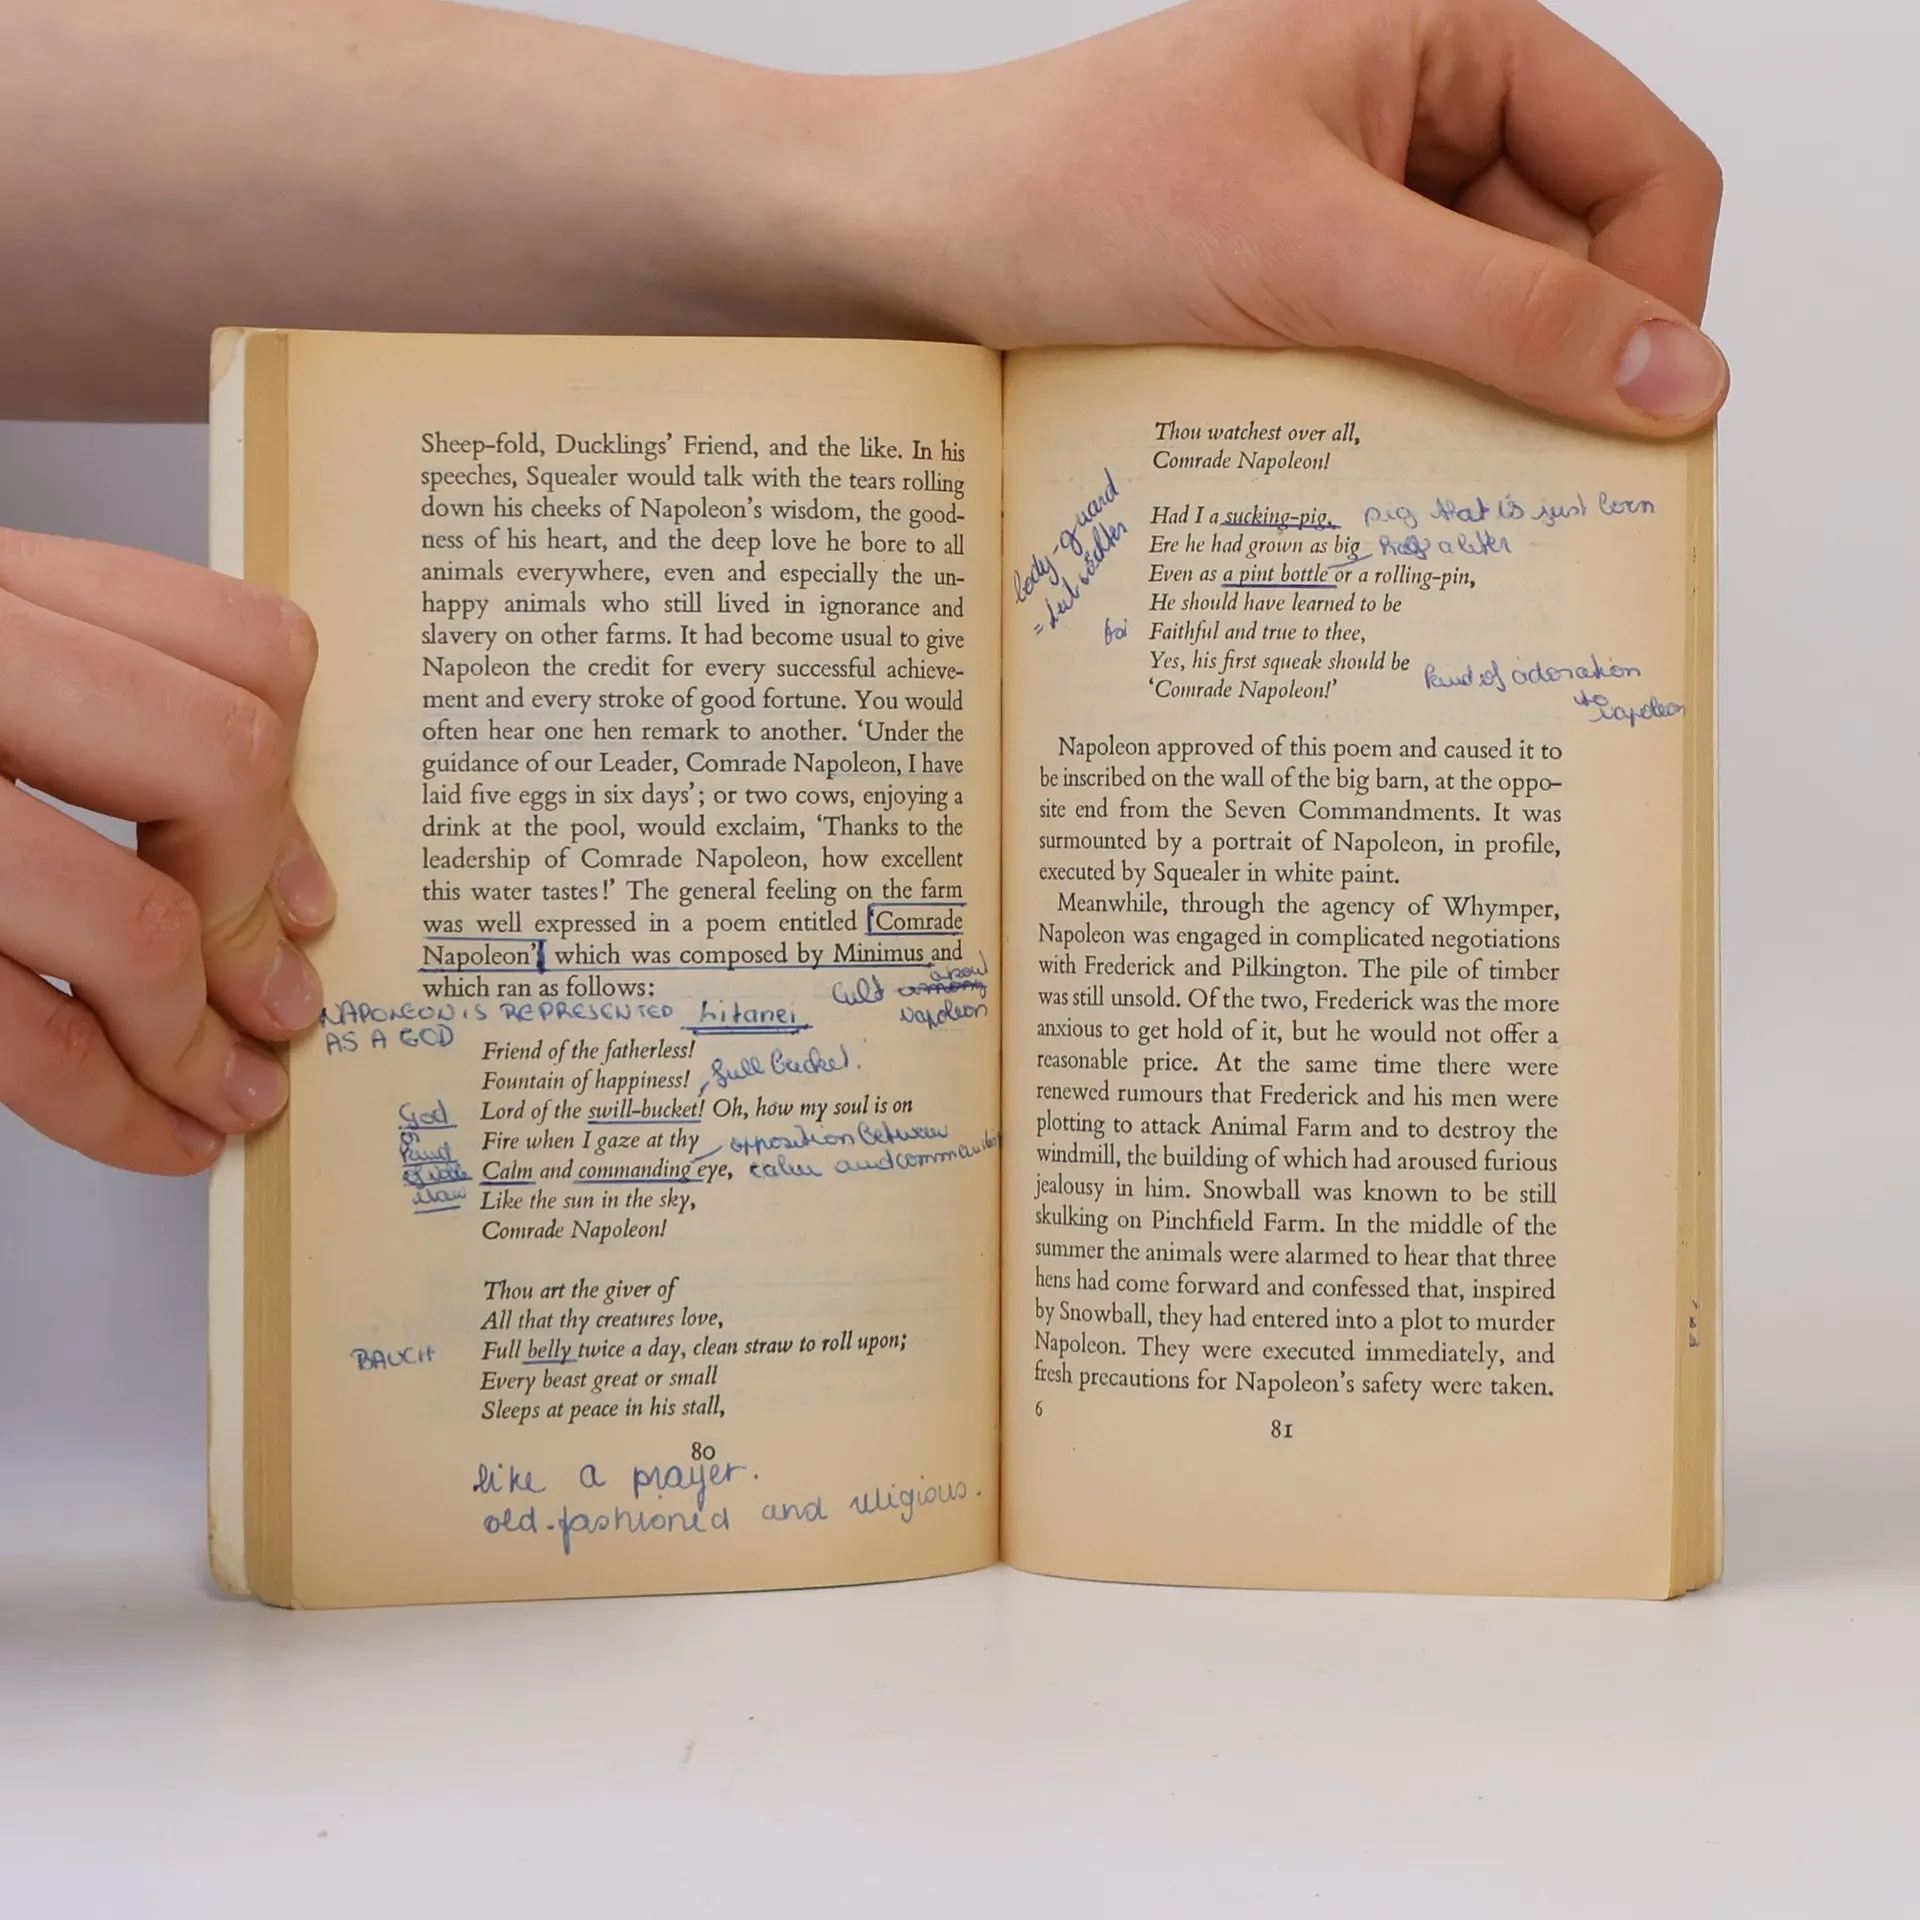 Sheep-fold, Ducklings' Friend, and the like. In his
speeches, Squealer would talk with the tears rolling
down his cheeks of Napoleon's wisdom, the good-
ness of his heart, and the deep love he bore to all
animals everywhere, even and especially the un-
happy animals who still lived in ignorance and
slavery on other farms. It had become usual to give
Napoleon the credit for every successful achieve-
ment and every stroke of good fortune. You would
often hear one hen remark to another. 'Under the
guidance of our Leader, Comrade Napoleon, I have
laid five eggs in six days'; or two cows, enjoying a
drink at the pool, would exclaim, 'Thanks to the
leadership of Comrade Napoleon, how excellent
this water tastes!' The general feeling on the farm
was well expressed in a poem entitled 'Comrade
Napoleon' which was composed by Minimus and
which ran as follows:
Cult about
Napoleon
NAPOLEON IS REPRESENTED Litanei
AS A GOD
Friend of the fatherless!
Fountain of happiness! full bucket!
Lord of the swill-bucket! Oh, how my soul is on
Fire when I gaze at thy opposition between
Calm and commanding eye, calm and commanding
God
Like the sun in the sky,
Comrade Napoleon!
Thou art the giver of
All that thy creatures love,
BAUCH Full belly twice a day, clean straw to roll upon;
Every beast great or small
Sleeps at peace in his stall,
80
like a prayer.
old-fashioned and religious.
Thou watchest over all,
Comrade Napoleon!
body-guard
Had I a sucking-pig, pig that is just born
Ere he had grown as big half a liter
Even as a pint bottle or a rolling-pin,
He should have learned to be
Faithful and true to thee,
Yes, his first squeak should be kind of adoration
'Comrade Napoleon!' to Napoleon
Napoleon approved of this poem and caused it to
be inscribed on the wall of the big barn, at the oppo-
site end from the Seven Commandments. It was
surmounted by a portrait of Napoleon, in profile,
executed by Squealer in white paint.
Meanwhile, through the agency of Whymper,
Napoleon was engaged in complicated negotiations
with Frederick and Pilkington. The pile of timber
was still unsold. Of the two, Frederick was the more
anxious to get hold of it, but he would not offer a
reasonable price. At the same time there were
renewed rumours that Frederick and his men were
plotting to attack Animal Farm and to destroy the
windmill, the building of which had aroused furious
jealousy in him. Snowball was known to be still
skulking on Pinchfield Farm. In the middle of the
summer the animals were alarmed to hear that three
hens had come forward and confessed that, inspired
by Snowball, they had entered into a plot to murder
Napoleon. They were executed immediately, and
fresh precautions for Napoleon's safety were taken.
6
81